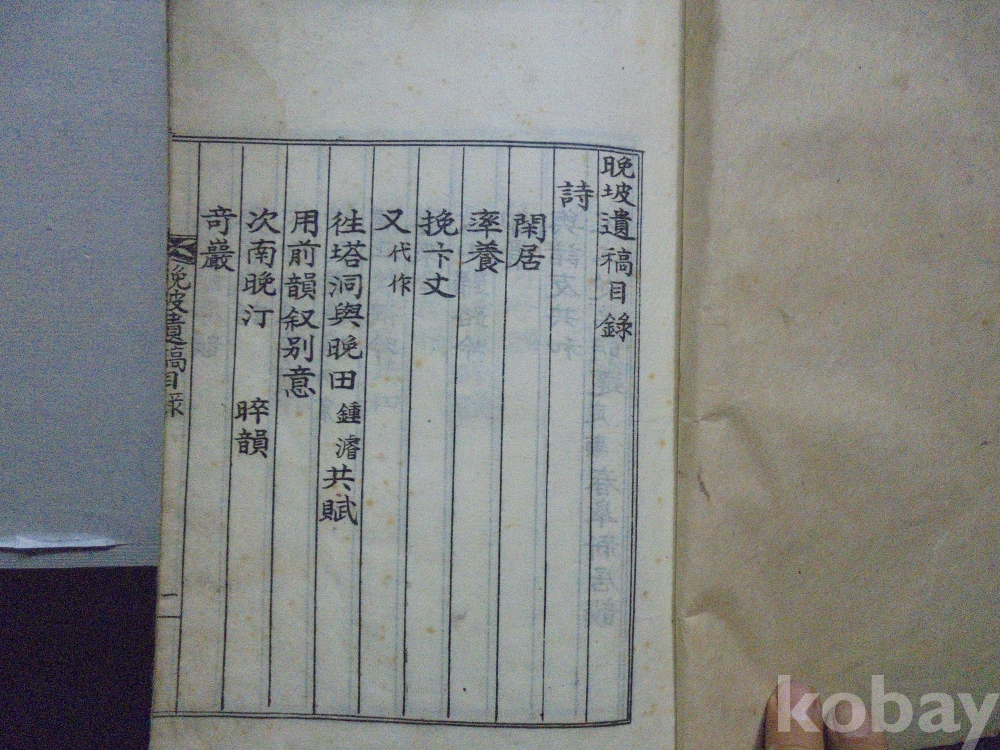 晩坡遺稿目錄
詩
閑居
率養
挽卞丈
又代作
徃塔洞與晩田鍾濬共賦
用前韻叙别意
次南晩汀 晬韻
奇巖
晩坡遺稿目錄
一
kobay